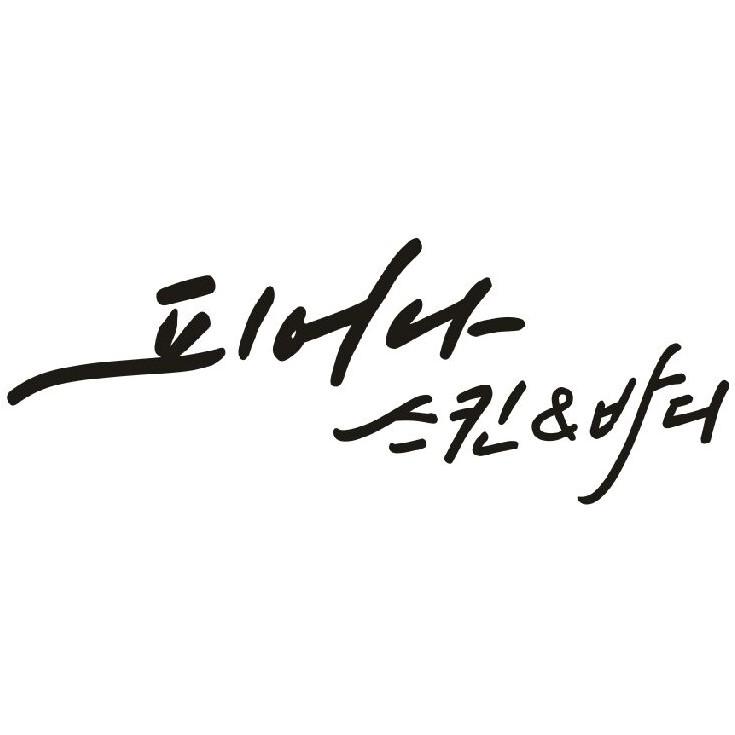 피어나
스킨&바디